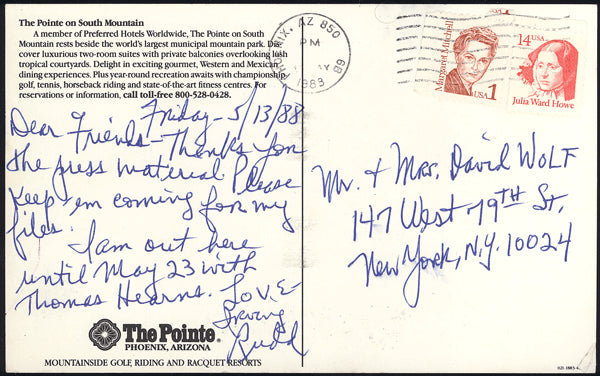 The Pointe on South Mountain
A member of Preferred Hotels Worldwide, The Pointe on South
Mountain rests beside the world's largest municipal mountain park. Dis
cover luxurious two-room suites with private balconies overlooking lush
tropical courtyards. Delight in exciting gourmet, Western and Mexican
dining experiences. Plus year-round recreation awaits with championship
golf, tennis, horseback riding and state-of-the-art fitness centres. For
reservations or information, call toll-free 800-528-0428.
Friday - 5/13/88
Dear Friends - Thank You
the press material. Please
keep 'em coming for my
files.
I am out here
until May 23 with
Thomas Hearns. LOVE
Irving
Rudd
The Pointe
PHOENIX, ARIZONA
MOUNTAINSIDE GOLF, RIDING AND RACQUET RESORTS
PHOENIX, AZ 850
PM
1988
Margaret Mitchell
USA 1
14 USA
Julia Ward Howe
Mr. + Mrs. David WOLF
147 West 79TH St.
New York, N.Y. 10024